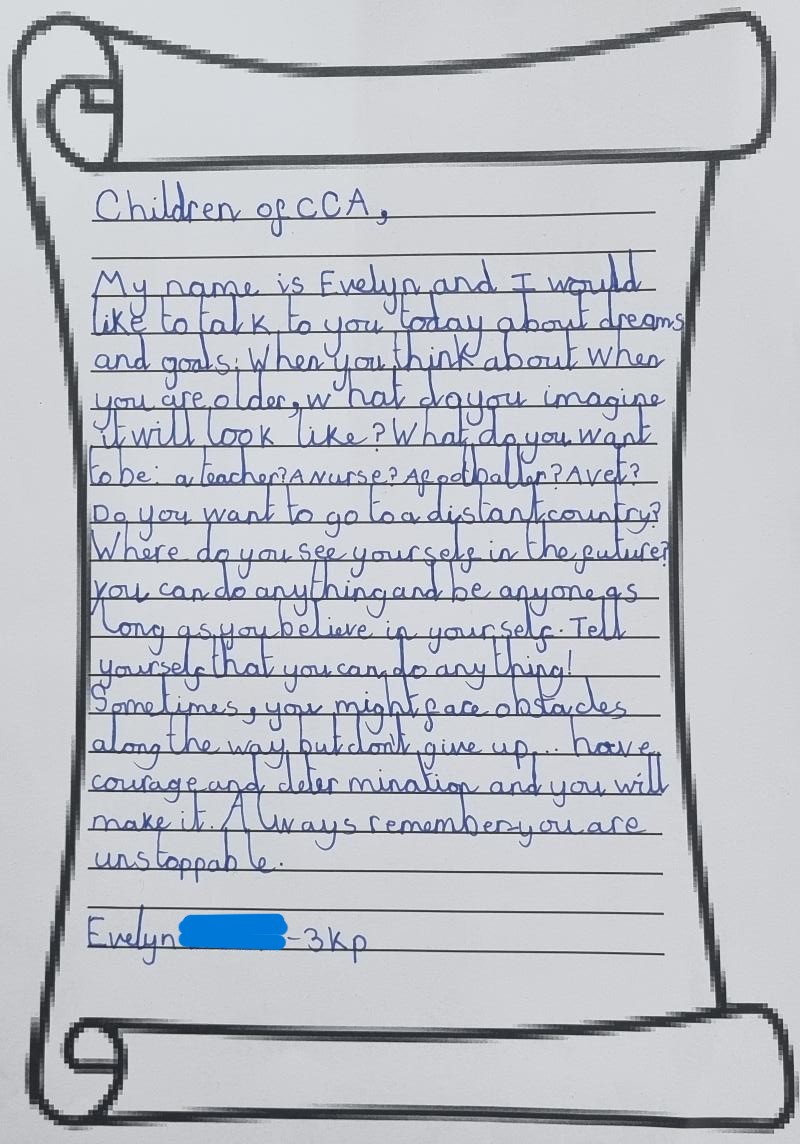 Children of CCA,
My name is Evelyn and I would
like to talk to you today about dreams
and goals. When you think about when
you are older, what do you imagine
it will look like? What do you want
to be: a teacher? A Nurse? A footballer? A vet?
Do you want to go to a distant country?
Where do you see yourself in the future?
You can do anything and be anyone as
long as you believe in yourself. Tell
yourself that you can do anything!
Sometimes, you might face obstacles
along the way, but don't give up... have
courage and determination and you will
make it. Always remember you are
unstoppable.
Evelyn -3KP